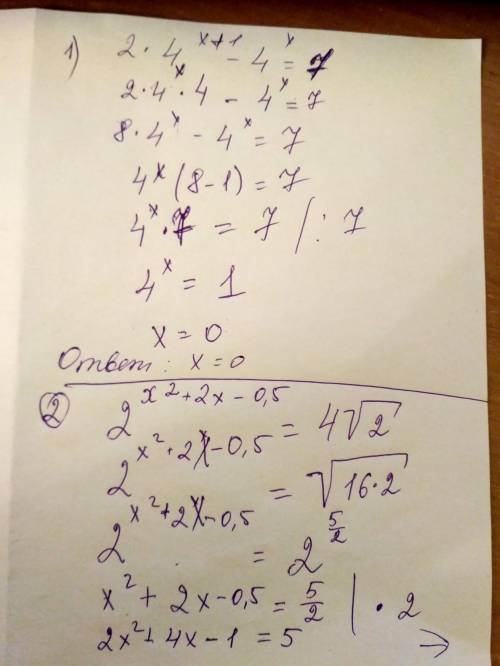 1) 2 · 4^(x+1) - 4^x = 7
2 · 4^x · 4 - 4^x = 7
8 · 4^x - 4^x = 7
4^x (8-1) = 7
4^x · 7 = 7 / : 7
4^x = 1
x = 0
Ответ: x = 0
② 2^(x²+2x-0,5) = 4√2
2^(x²+2x-0,5) = √(16·2)
2^(x²+2x-0,5) = 2^(5/2)
x² + 2x - 0,5 = 5/2 | · 2
2x² + 4x - 1 = 5 →